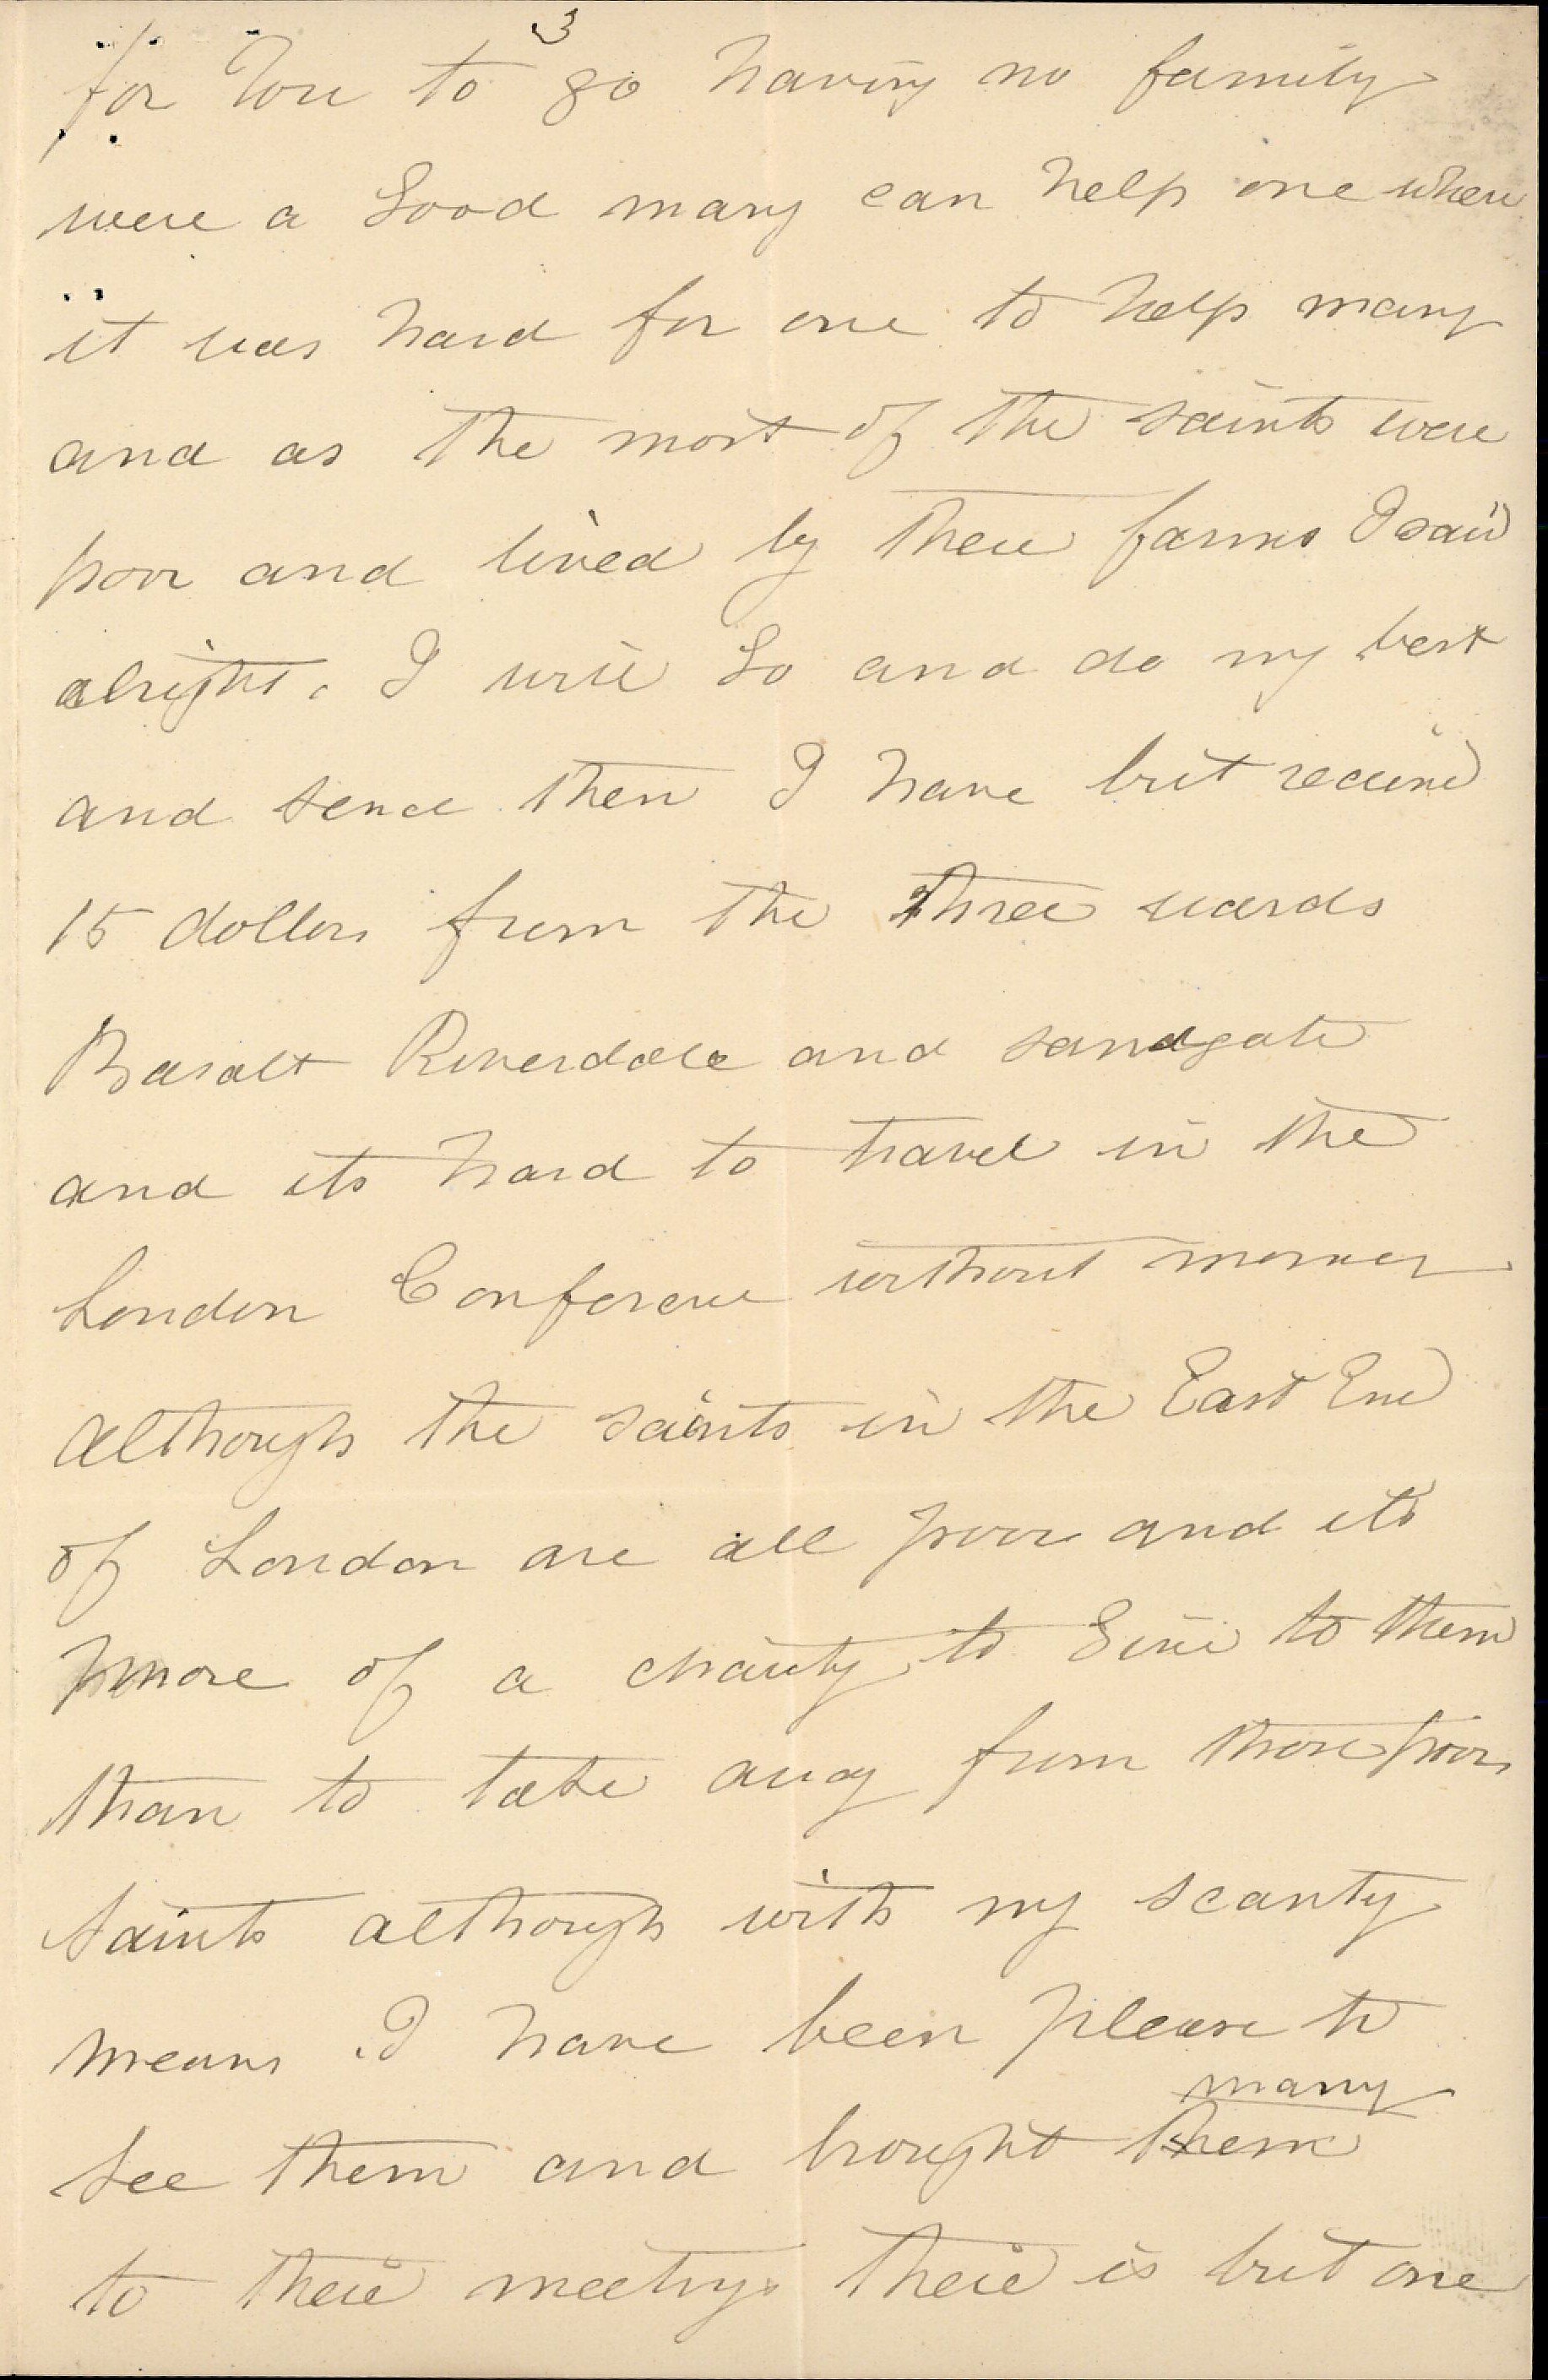 3
for You to go having no family
were a Good many can help one where
it was hard for one to help many
and as the most of the saints were
poor and lived by there farms I said
alright. I will Go and do my best
and sence then I have but received
15 dollers from the three wards
Basalt Riverdale and sandgate
and its hard to travel in the
London Conference without money
although the saints in the East End
of London are all poor and its
more of a charity to Give to them
than to take away from those poor
saints although with my scanty
means I have been please to
many
see them and brought them
to there meetings there is but one